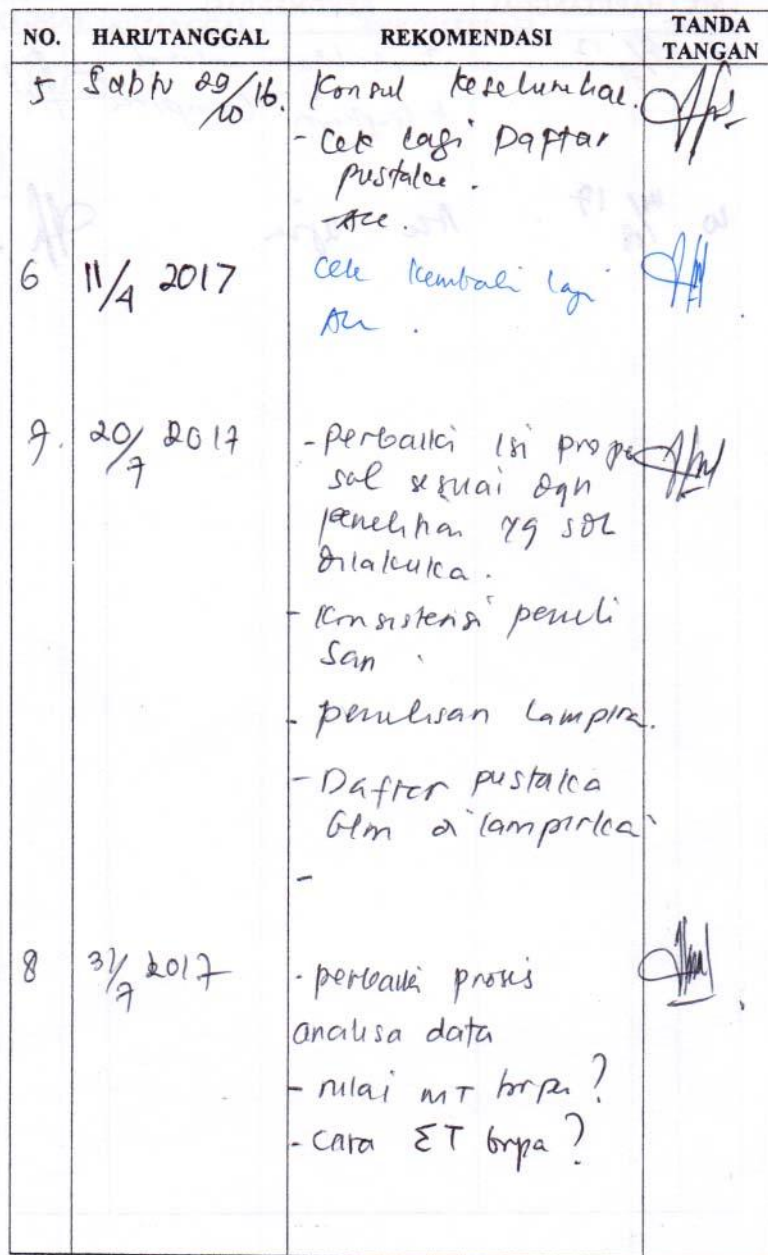 NO. HARI/TANGGAL REKOMENDASI TANDA TANGAN
5 Sabtu 29/10 16. Konsul keseluruhan.
- Cek lagi Daftar
pustaka.
- Acc.
6 11/4 2017 Cek kembali lagi
Acc.
7. 20/7 2017 - perbaiki isi propo
sal sesuai dgn
penelitian yg sdh
dilakuka.
- Konsistensi penuli
san
- penulisan Lampira.
- Daftar pustaka
blm di lampirka
-
8 31/7 2017 - perbaiki proses
analisa data
- nilai mT brpa?
- cara ΣT brpa?